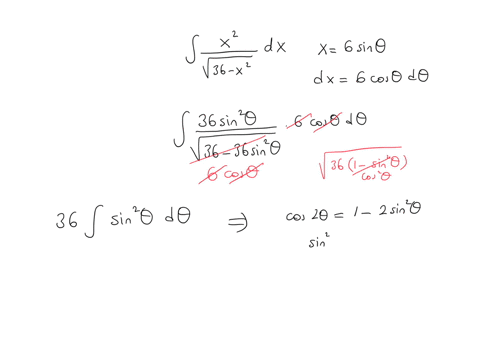 ∫ x²/√(36-x²) dx   x = 6 sinθ
dx = 6 cosθ dθ
∫ 36 sin²θ/√(36-36sin²θ) · 6 cosθ dθ
6 cosθ   √(36(1-sin²θ))
cos²θ
36 ∫ sin²θ dθ ⇒ cos 2θ = 1 - 2 sin²θ
sin²